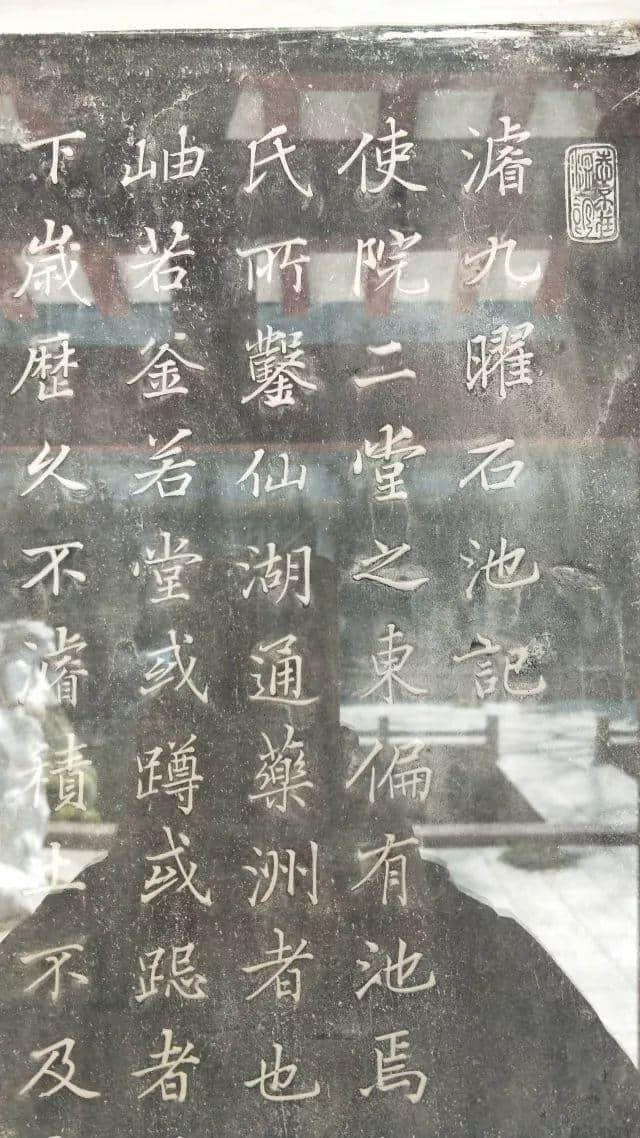 濬九曜石池記
使院二堂之東偏有池焉
氏所鑿仙湖通藥洲者也
岫若釡若堂或蹲或跽者
下嵗歷久不濬積土不及